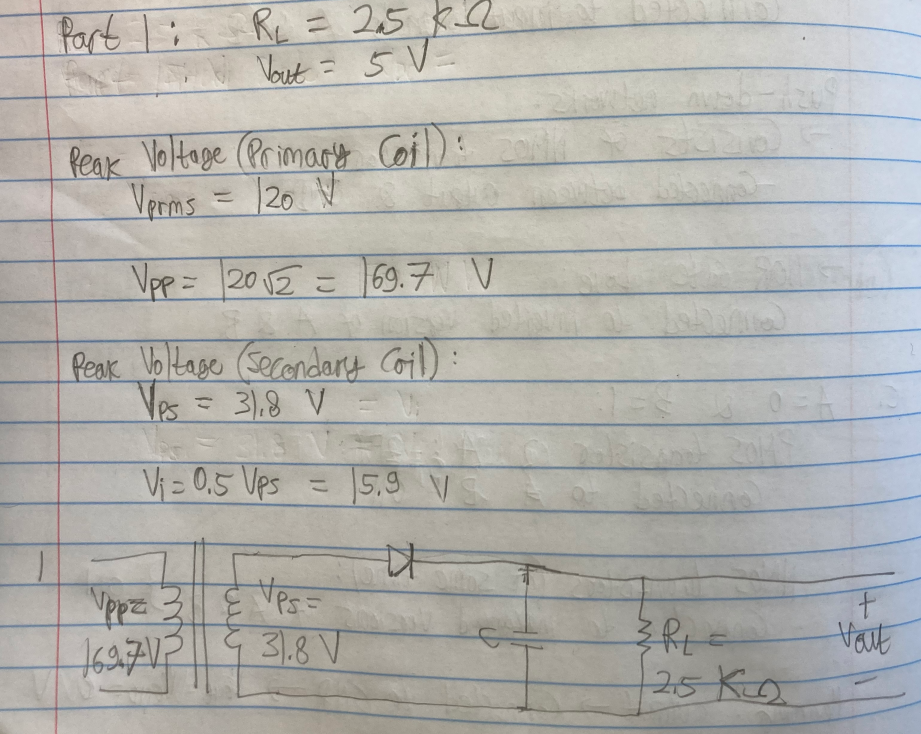 Part 1: RL = 2.5 KΩ
Vout = 5 V
Peak Voltage (Primary Coil):
Vprms = 120 V
Vpp = 120√2 = 169.7 V
Peak Voltage (Secondary Coil):
Vps = 31.8 V
Vi = 0.5 Vps = 15.9 V
1
Vpp=
169.7V
Vps =
31.8 V
C
+
RL =
2.5 KΩ
+
Vout
-